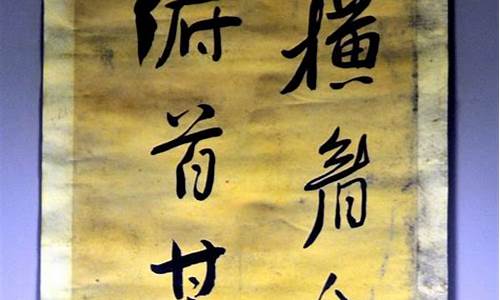 横眉
俯首甘